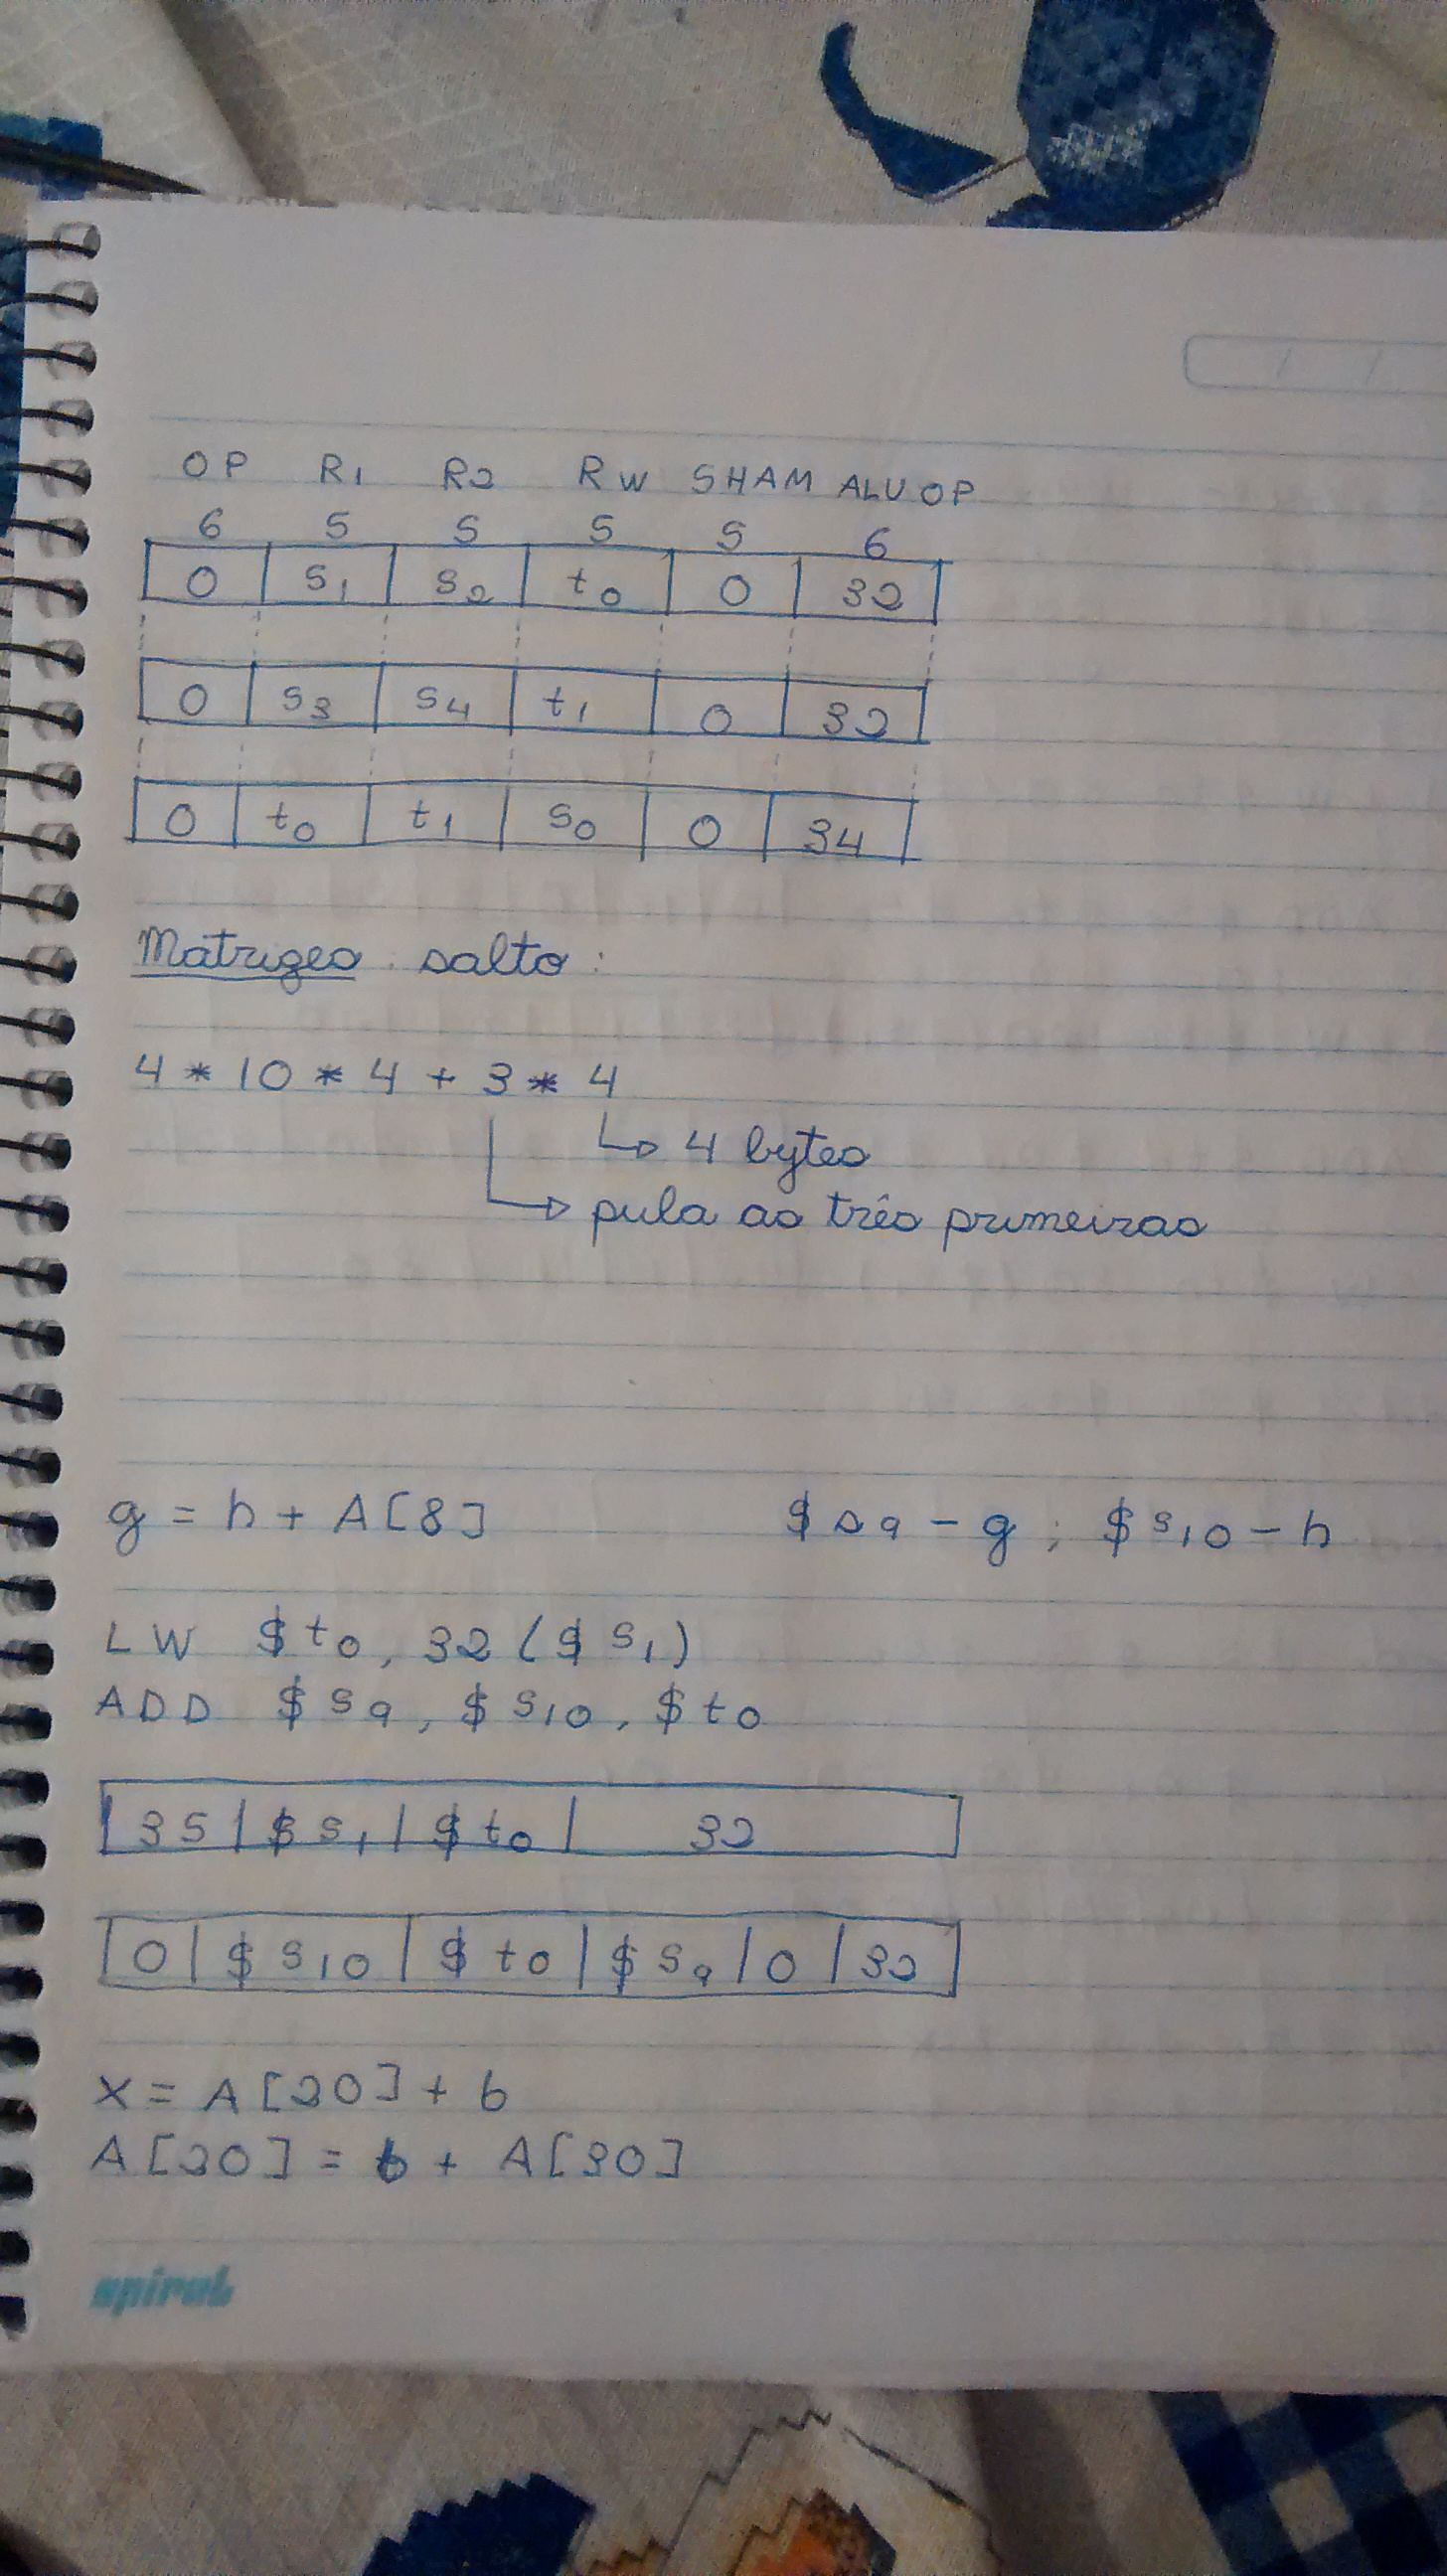 OP R1 R2 RW SHAM ALUOP
6 5 5 5 5 6
0 s1 s2 t0 0 32
0 s3 s4 t1 0 32
0 t0 t1 s0 0 34
Matrizes salto:
4 * 10 * 4 + 3 * 4
4 bytes
pula as três primeiras
g = h + A[8] $s9 - g; $s10 - h
LW $t0, 32($s1)
ADD $s9, $s10, $t0
35 $s1 $t0 32
0 $s10 $t0 $s9 0 32
X = A[20] + b
A[20] = b + A[30]
spiral